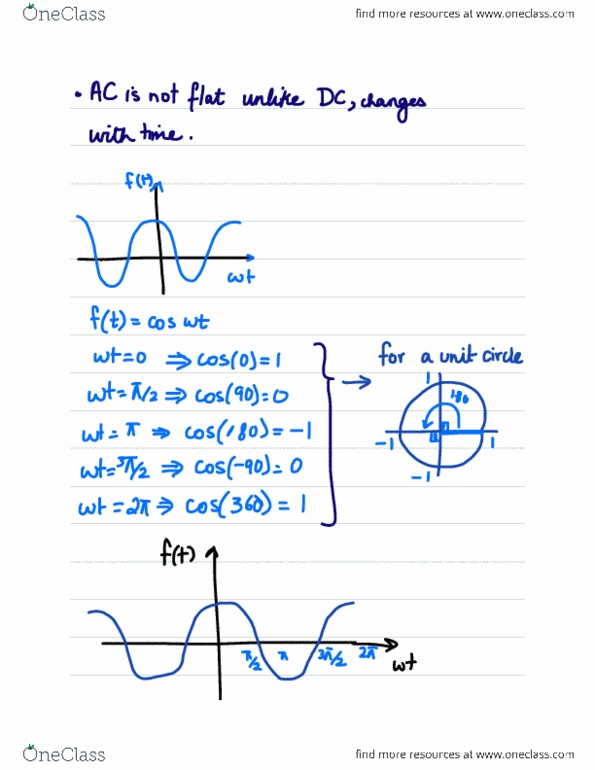 OneClass find more resources at www.oneclass.com
• AC is not flat unlike DC, changes
with time.
f(t)
ωt
f(t) = cos ωt
ωt=0 ⇒ cos(0)=1
ωt=π/2 ⇒ cos(90)=0
ωt=π ⇒ cos(180)=-1
ωt=3π/2 ⇒ cos(-90)=0
ωt=2π ⇒ cos(360)=1
→ for a unit circle
1
180
-1 1
-1
f(t)
π/2 π 3π/2 2π
ωt
OneClass find more resources at www.oneclass.com